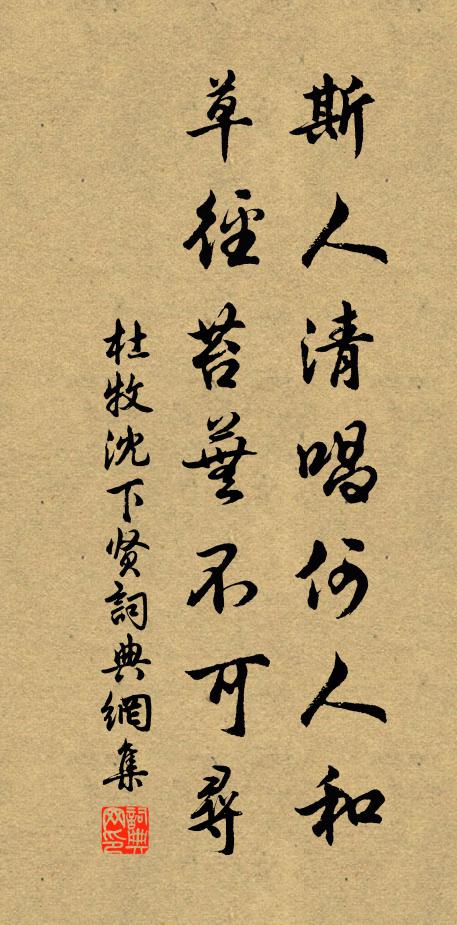 斯人清唱何人和
草徑苔蕪不可尋
杜牧沈下贤詞典網集
詞典網印